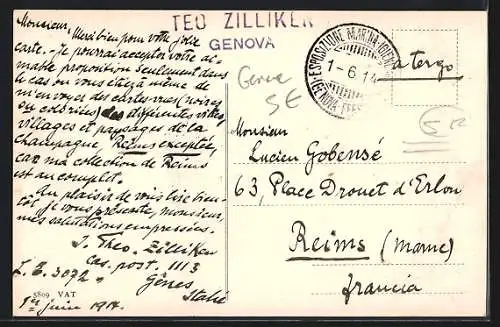 Monsieur,
Merci bien pour votre jolie
carte. - Je pourrai accepter votre ai-
mable proposition seulement dans
le cas ou vous etiez à même de
m'envoyer des cartes vues (noires
ou coloriées) des differentes villes,
villages et paysages de la
Champagne, Reims exceptée,
car ma collection de Reims
est au complet.
Au plaisir de vous lire bien-
tôt je vous présente, monsieur,
mes salutations empressées.
J. Theo. Zilliken
Cas. post. 1113
L. E. 3072 Gênes
Italie
5809 VAT
1er Juin 1914.
TEO ZILLIKEN
GENOVA
ESPOSIZIONE MARINA
1-6.14
GENOVA
a tergo
Genova
SE
Monsieur
Lucien Gobensé
63, Place Drouet d'Erlon
Reims (Marne)
Francia